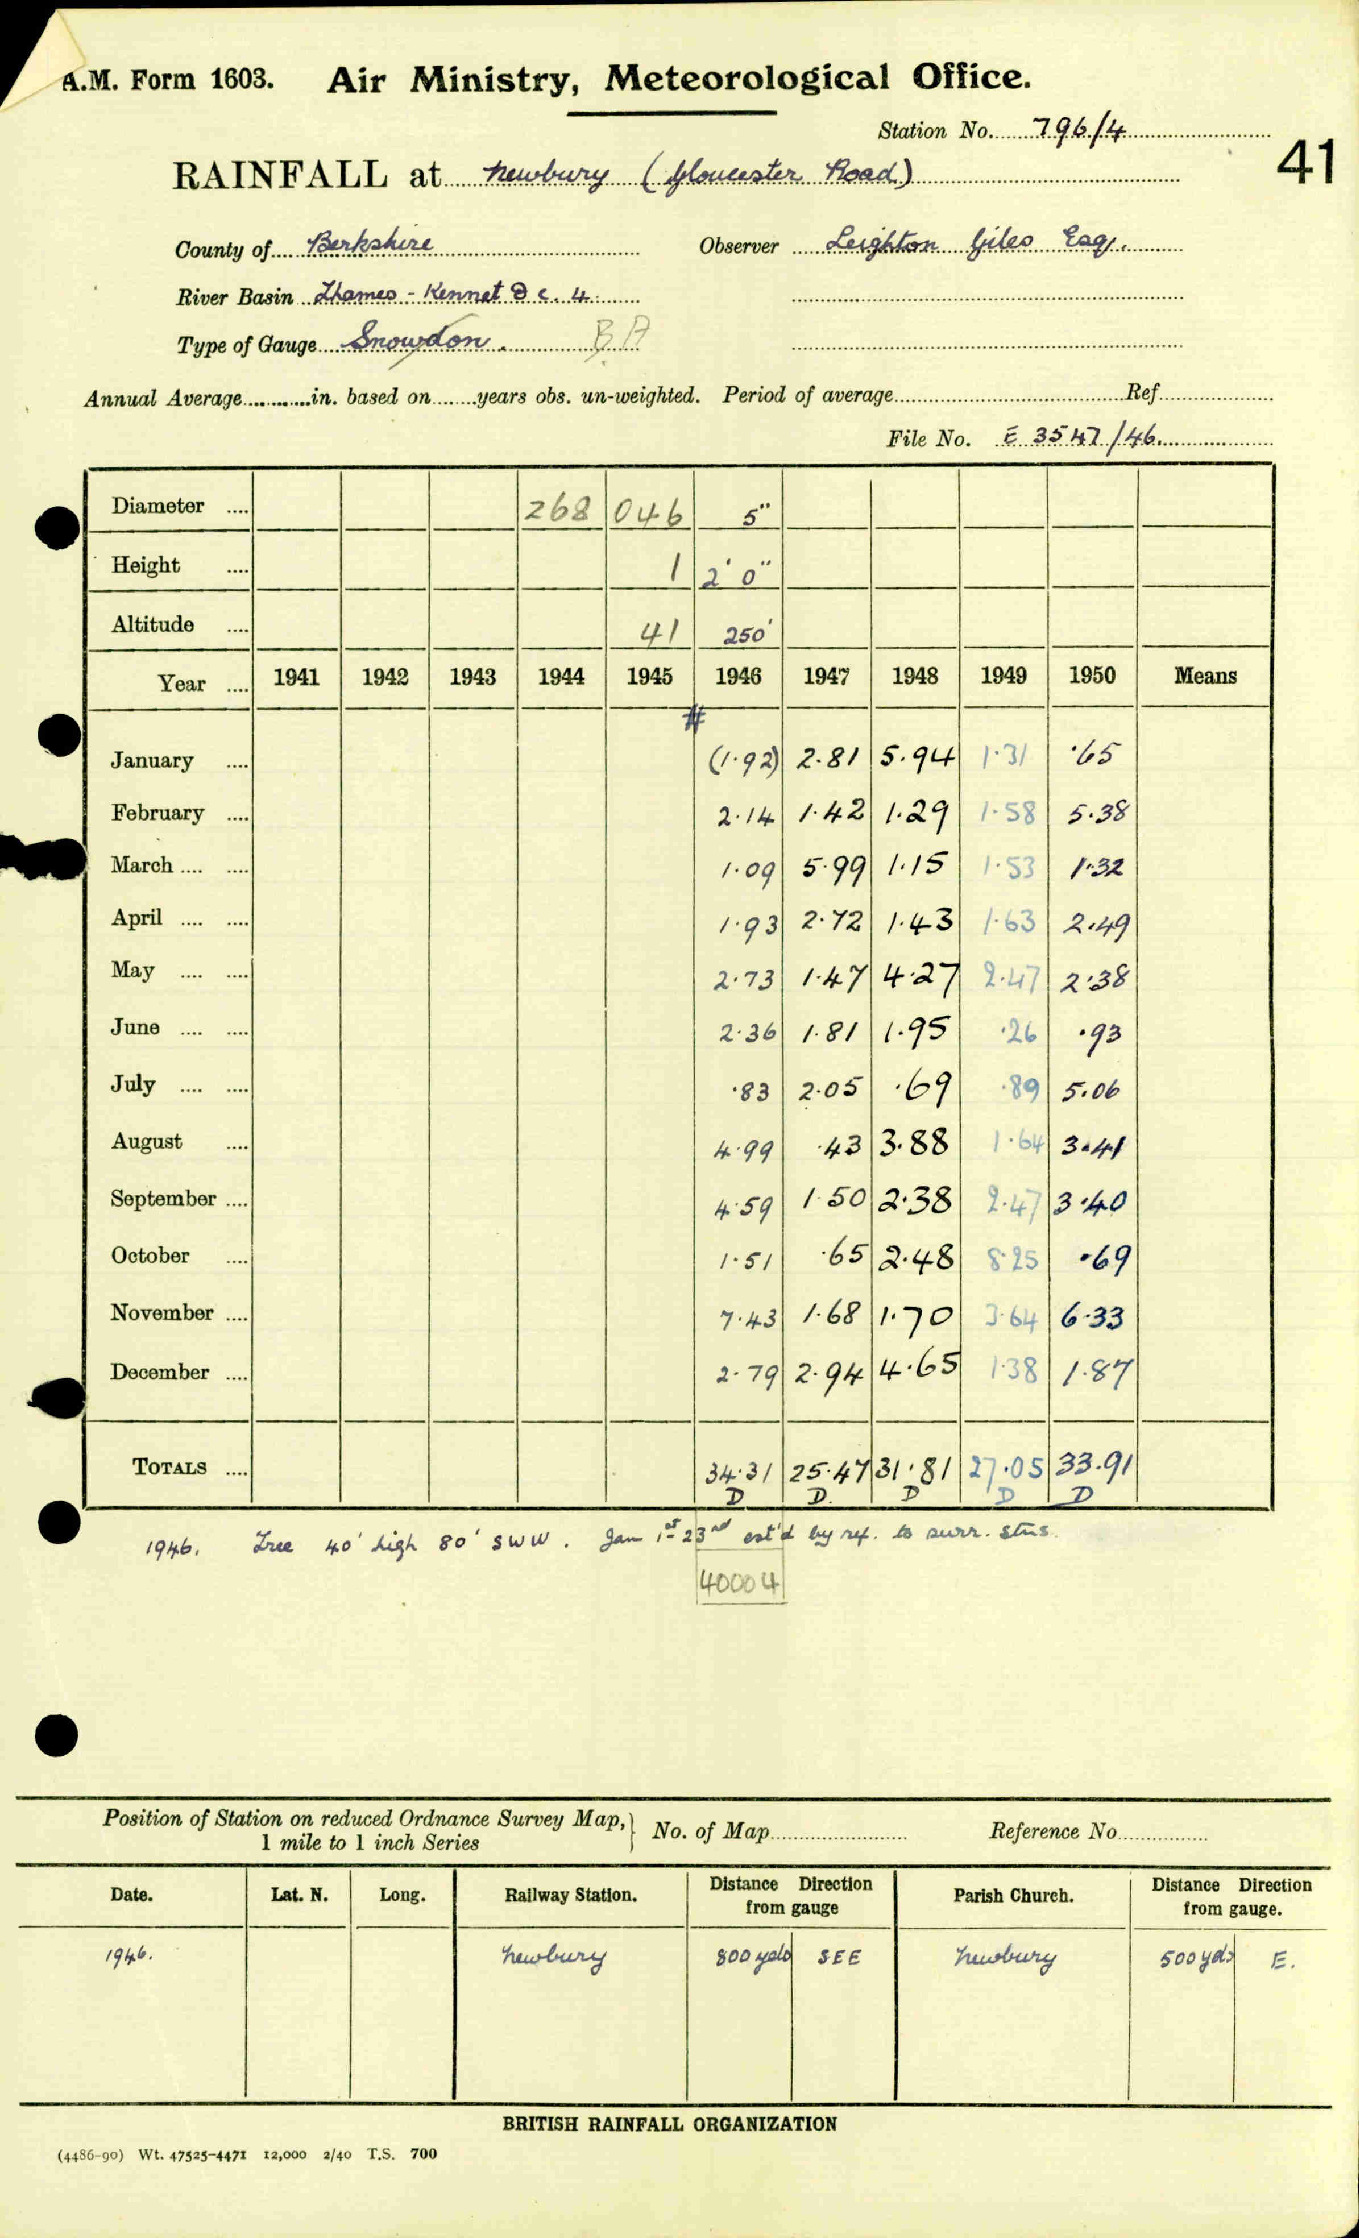 A.M. Form 1603. Air Ministry, Meteorological Office.
Station No. 796/4
41
RAINFALL at Newbury (Gloucester Road)
County of Berkshire Observer Leighton Giles Esq.
River Basin Thames - Kennet D c. 4.
Type of Gauge Snowdon. BA
Annual Average in. based on years obs. un-weighted. Period of average Ref.
File No. E 3547/46
Diameter 268 046 5"
Height 1 2' 0"
Altitude 41 250'
Year 1941 1942 1943 1944 1945 1946 1947 1948 1949 1950 Means
#
January (1.92) 2.81 5.94 1.31 .65
February 2.14 1.42 1.29 1.58 5.38
March 1.09 5.99 1.15 1.53 1.32
April 1.93 2.72 1.43 1.63 2.49
May 2.73 1.47 4.27 2.47 2.38
June 2.36 1.81 1.95 .26 .93
July .83 2.05 .69 .89 5.06
August 4.99 .43 3.88 1.64 3.41
September 4.59 1.50 2.38 2.47 3.40
October 1.51 .65 2.48 8.25 .69
November 7.43 1.68 1.70 3.64 6.33
December 2.79 2.94 4.65 1.38 1.87
TOTALS 34.31 25.47 31.81 27.05 33.91
D D D D D
1946. Tree 40' high 80' SWW. Jan 1st-23rd est'd by ref. to surr. stns.
40004
Position of Station on reduced Ordnance Survey Map, } No. of Map Reference No.
1 mile to 1 inch Series
Date. Lat. N. Long. Railway Station. Distance Direction from gauge Parish Church. Distance Direction from gauge.
1946. Newbury 800 yds SEE Newbury 500 yds E.
BRITISH RAINFALL ORGANIZATION
(4486-90) Wt. 47525-4471 12,000 2/40 T.S. 700